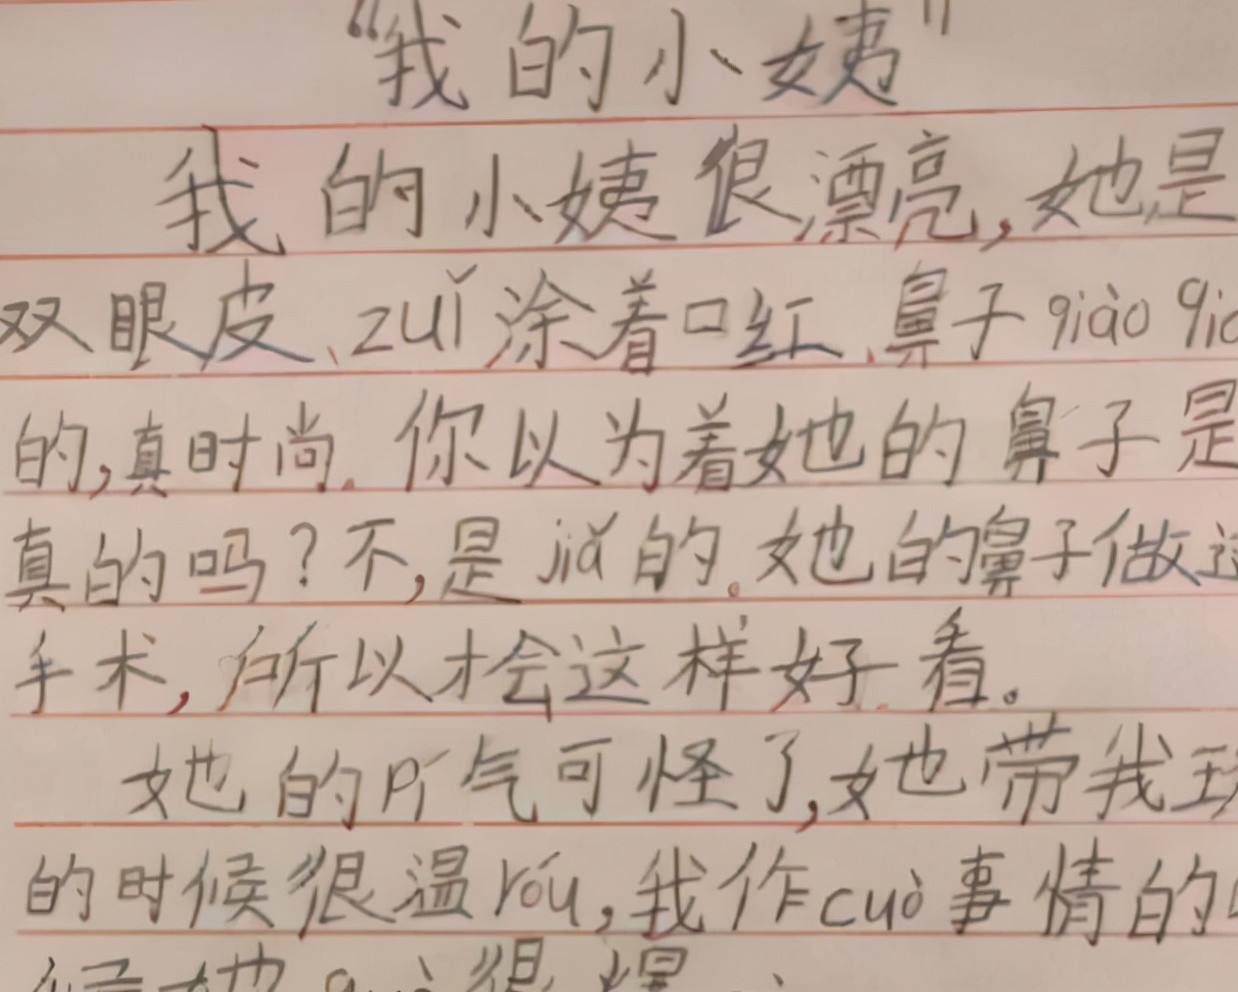 “我的小姨”
我的小姨很漂亮,她是
双眼皮、zuǐ涂着口红、鼻子qiào
的,真时尚.你以为着她的鼻子是
真的吗?不,是jiǎ的。她的鼻子做过
手术,所以才会这样好看。
她的pí气可怪了,她带我玩
的时候很温róu,我作cuò事情的
候她 很